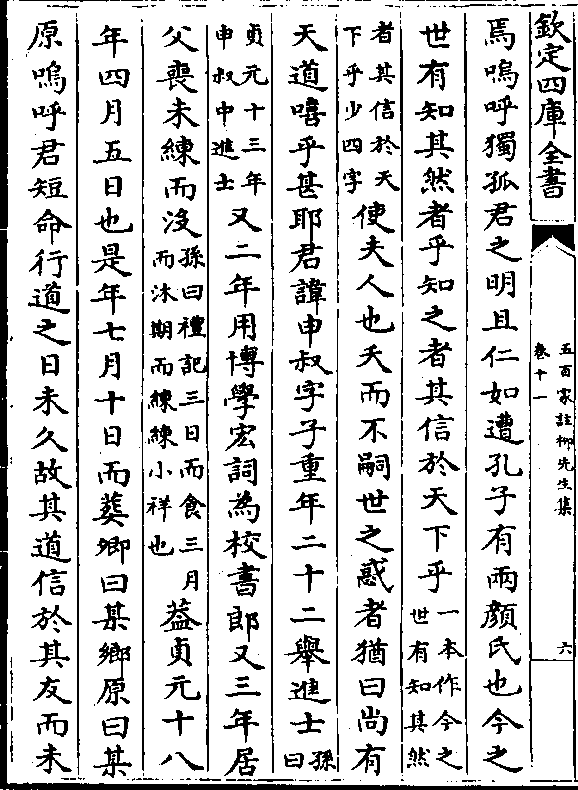 欽定四庫全書
五百家註柳先生集
卷十一
六
焉嗚呼獨孤君之明且仁如遭孔子有兩顔氏也今之
世有知其然者乎知之者其信於天下乎一本作今之世有知其然
者其信於天下乎少四字使夫人也夭而不嗣世之惑者猶曰尚有
天道嘻乎甚耶君諱申叔字子重年二十二舉進士孫曰
貞元十三年申叔中進士又二年用博學宏詞為校書郎又三年居
父喪未練而沒孫曰禮記三日而食三月而沐期而練練小祥也葢貞元十八
年四月五日也是年七月十日而葬鄉曰某鄉原曰某
原嗚呼君短命行道之日未久故其道信於其友而未